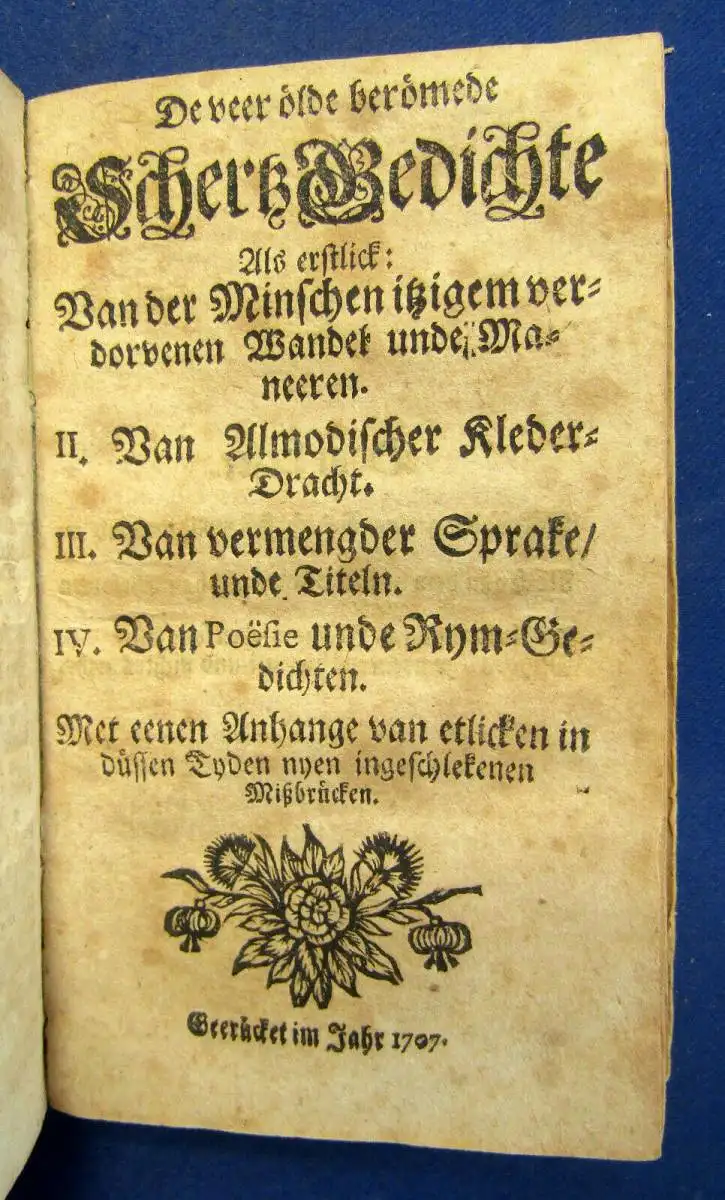 De veer ölde berömede
Schertz Gedichte
Als erstlick:
Van der Minschen itzigem ver-
dorvenen Wandel unde Ma-
neeren.
II. Van Almodischer Kleder-
Dracht.
III. Van vermengder Sprake/
unde Titeln.
IV. Van Poësie unde Rym-Ge-
dichten.
Met eenen Anhange van etlicken in
düssen Tyden nyen ingeschlekenen
Mißbrücken.
Geerücket im Jahr 1707.